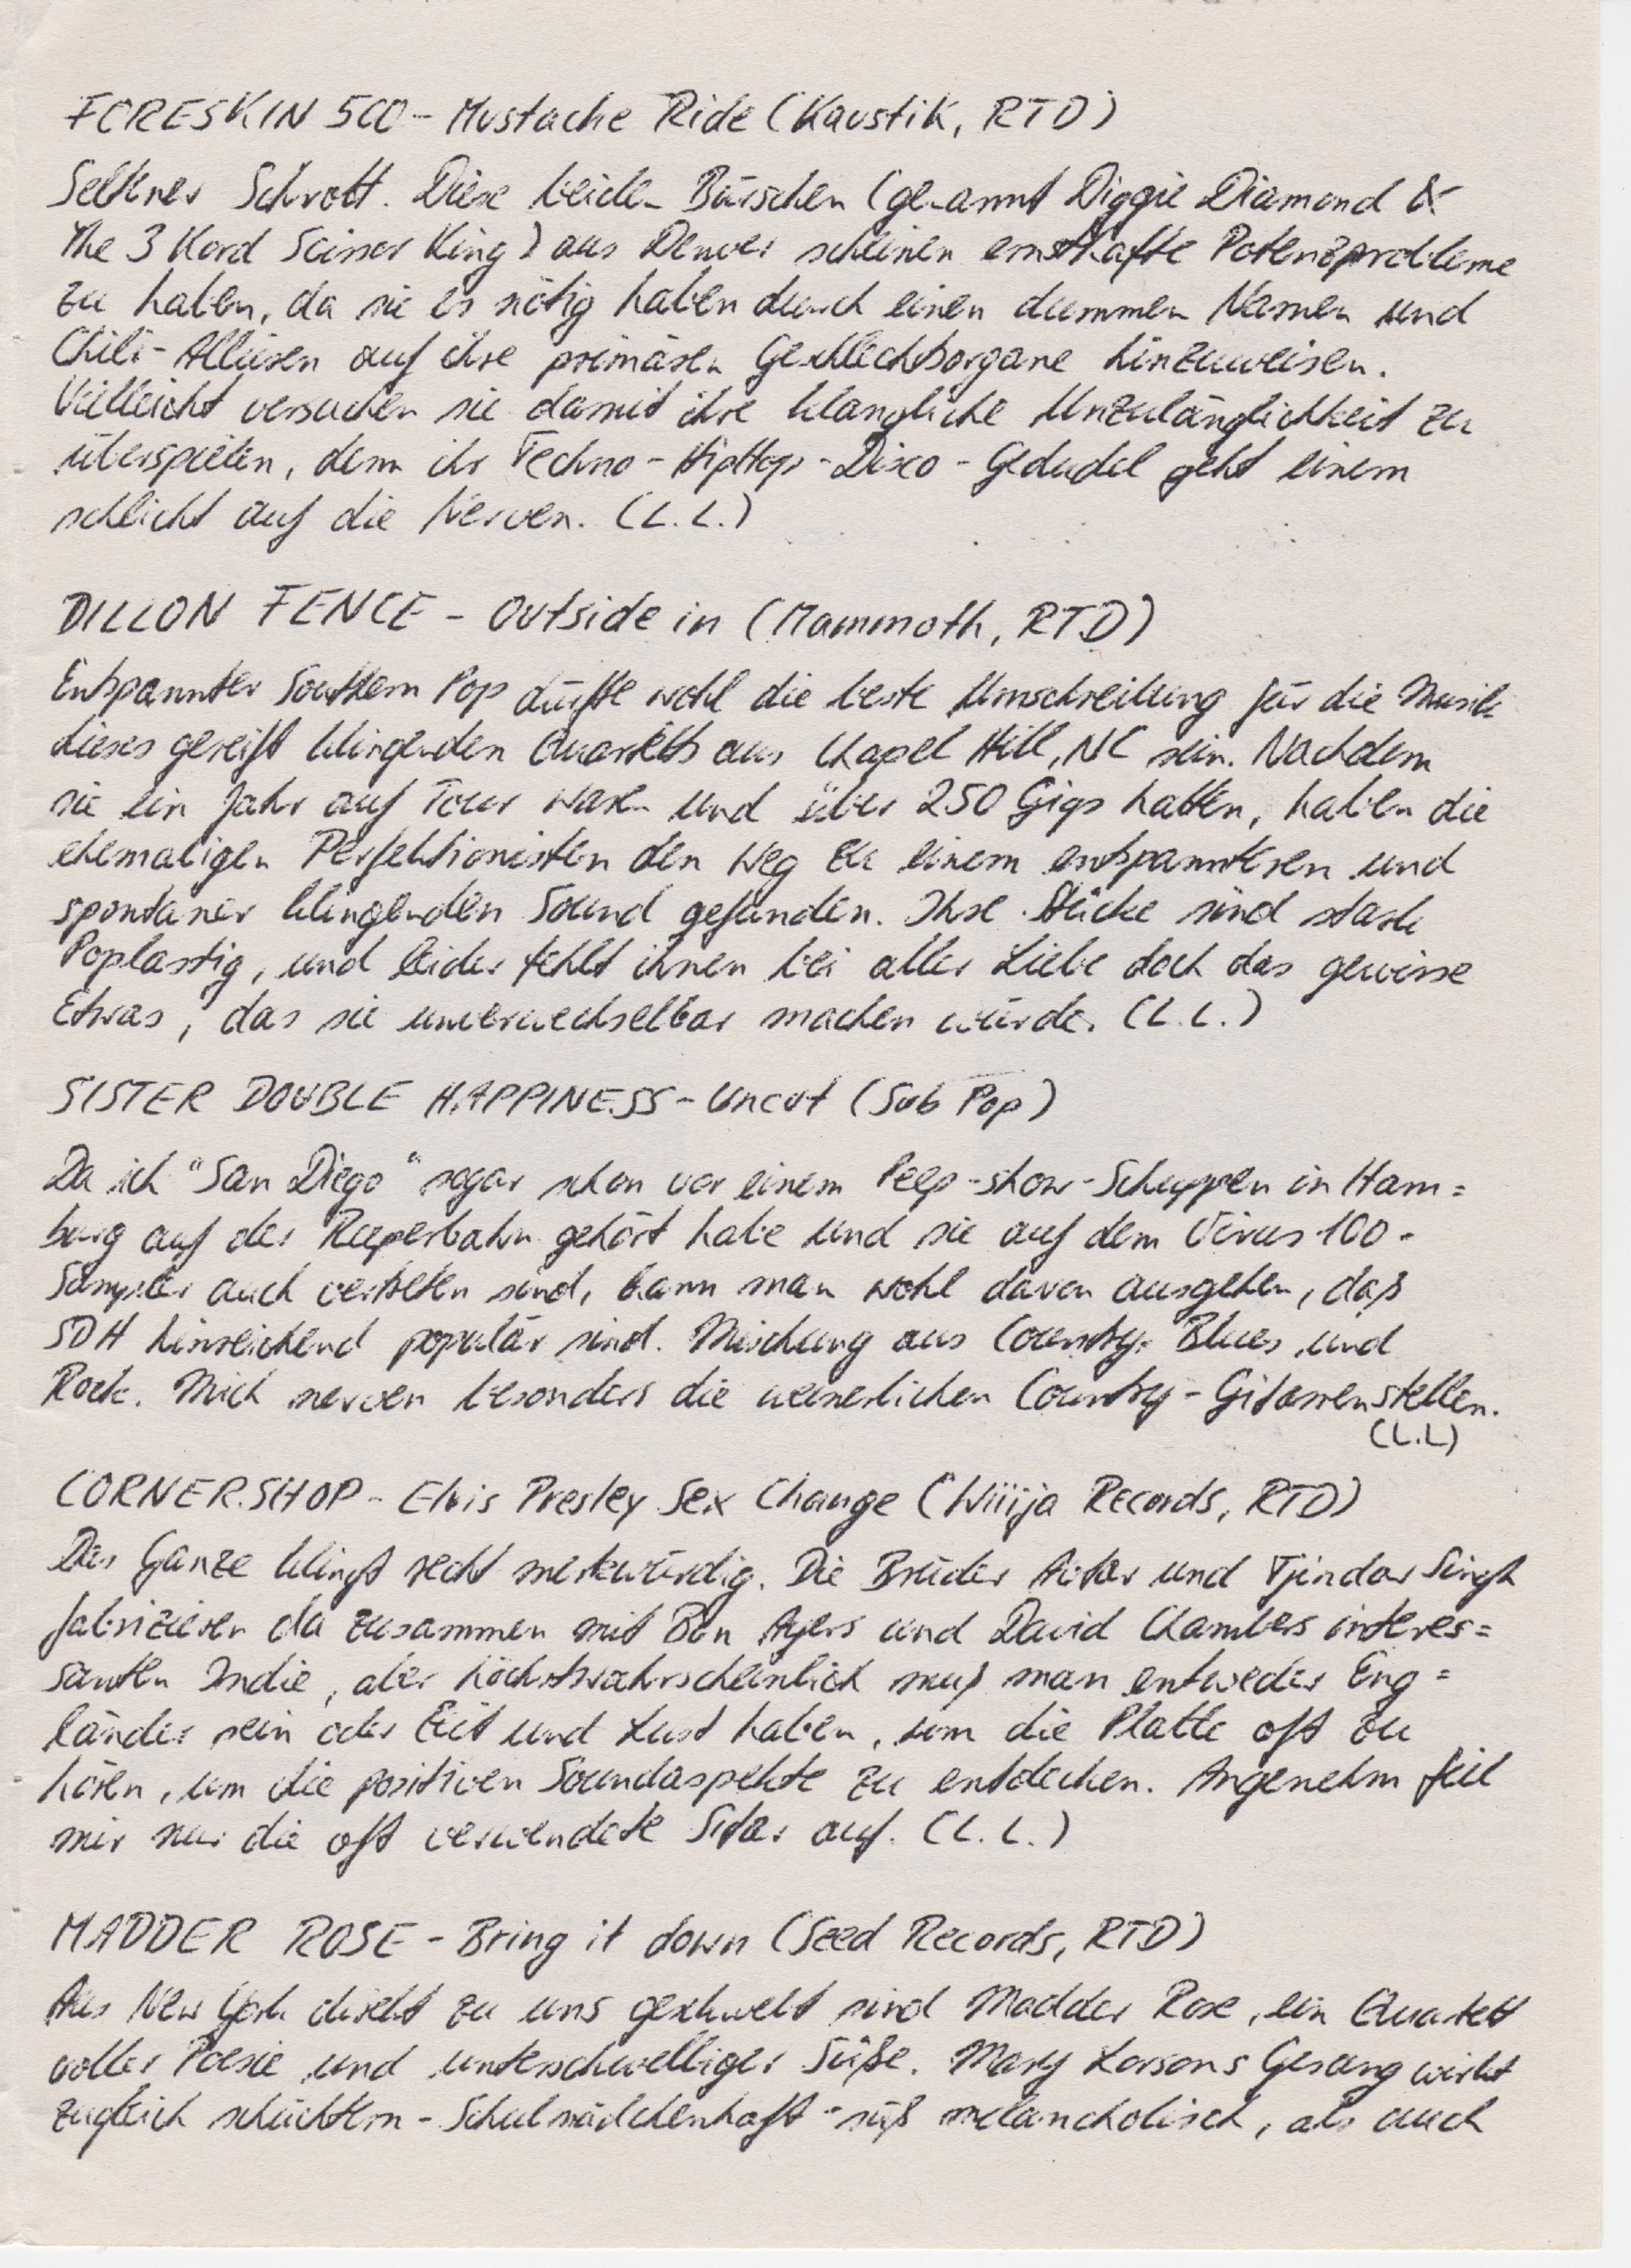 FORESKIN 500 - Mustache Ride (Kaustik, RTD)
Seltner Schrott. Diese beiden Bürschen (genannt Diggie Diamond &
The 3 Kord Scissor King) aus Denver scheinen ernsthafte Potenzprobleme
zu haben, da sie es nötig haben durch einen dummen Namen und
Chili-Allüren auf ihre primären Geschlechtsorgane hinzuweisen.
Vielleicht versuchen sie damit ihre klangliche Unzulänglichkeit zu
überspielen, denn ihr Techno-HipHop-Disco-Gedudel geht einem
schlicht auf die Nerven. (L.L.)
DILLON FENCE - Outside in (Mammoth, RTD)
Entspannter Southern Pop dürfte wohl die beste Umschreibung für die Musik
dieses gereift klingenden Quartetts aus Chapel Hill, NC sein. Nachdem
sie ein Jahr auf Tour waren und über 250 Gigs hatten, haben die
ehemaligen Perfektionisten den Weg zu einem entspannteren und
spontaner klingenden Sound gefunden. Ihre Stücke sind stark
Poplastig, und leider fehlt ihnen bei aller Liebe doch das gewisse
Etwas, das sie unverwechselbar machen würde. (L.L.)
SISTER DOUBLE HAPPINESS - Uncut (Sub Pop)
Da ich "San Diego" sogar schon vor einem Peep-show-Schuppen in Ham=
burg auf der Reeperbahn gehört habe und sie auf dem Virus 100-
Sampler auch vertreten sind, kann man wohl davon ausgehen, daß
SDH hinreichend populär sind. Mischung aus Country, Blues und
Rock. Mich nerven besonders die weinerlichen Country-Gitarrenstellen.
(L.L)
CORNERSHOP - Elvis Presley Sex Change (Wiiija Records, RTD)
Das Ganze klingt recht merkwürdig. Die Brüder Avtar und Tjindar Singh
fabrizieren da zusammen mit Ben Ayers und David Chambers interes=
santen Indie, aber höchstwahrscheinlich muß man entweder Eng=
länder sein oder Zeit und Lust haben, um die Platte oft zu
hören, um die positiven Soundaspekte zu entdecken. Angenehm fiel
mir nur die oft verwendete Sitar auf. (L.L.)
MADDER ROSE - Bring it down (Seed Records, RTD)
Aus New York direkt zu uns geschwebt sind Madder Rose, ein Quartett
voller Poesie und unterschwelliger Süße. Mary Lorsons Gesang wirkt
zugleich schüchtern-Schulmädchenhaft-süß melancholisch, als auch